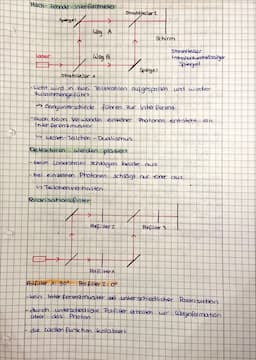 Mach-Zehnder-Interferometer
Spiegel
Strahlteiler 2
Weg A
Schirm
Laser
Weg B
Strahlteiler
Spiegel
Strahlteiler 1
Spiegel
- Licht wird in Teilstrahlen aufgespalten und wieder
zusammengeführt
→ Gangunterschiede führen zur Interferenz
- Auch beim Verwenden einzelner Photonen entsteht ein
Interferenzmuster
→ Wellen-Teilchen-Dualismus
Detektoren werden platziert
- beim Laserstrahl schlagen beide aus
- bei einzelnen Photonen schlägt nur einer aus
→ Teilchenverhalten
Polarisationsfilter
Polfilter 2
Polfilter 3
Polfilter 1
Polfilter 1: 90° Polfilter 2: 0°
- kein Interferenzmuster bei unterschiedlicher Polarisation
- durch unterschiedliche Polfilter erhalten wir Weginformation
über das Photon
- die Wellenfunktion kollabiert